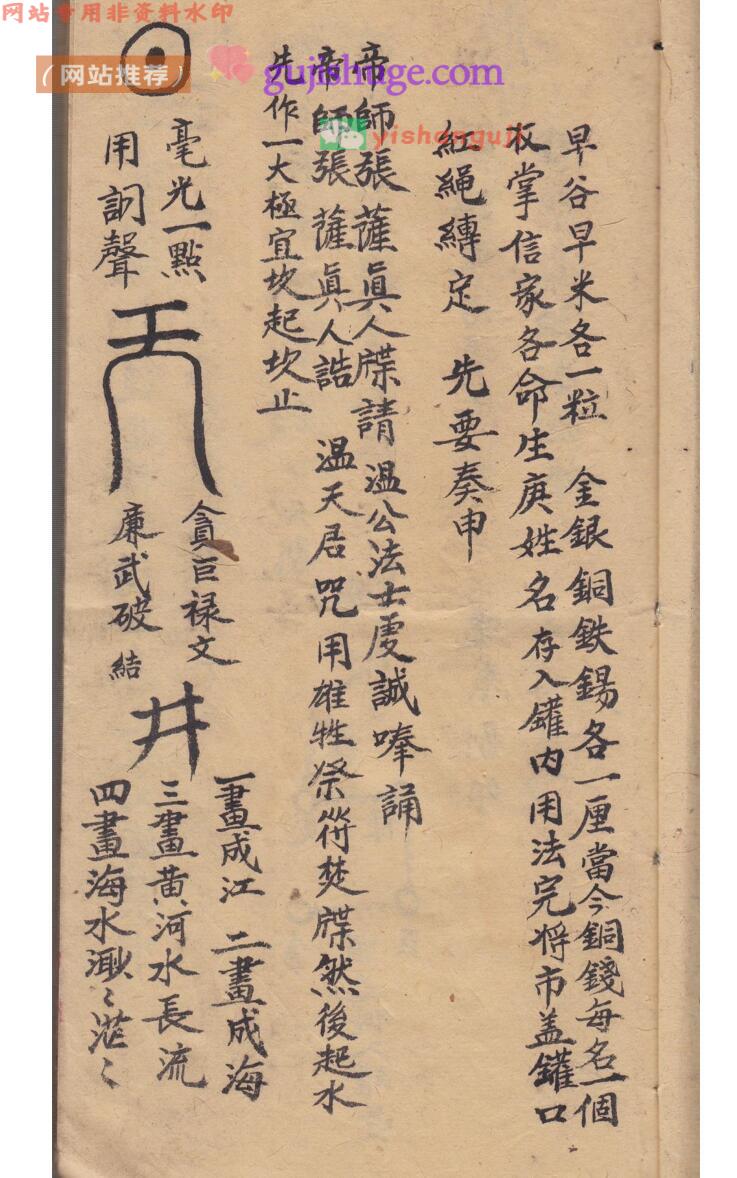 网站专用非资料水印
(网站推荐)
gujishuge.com
yishanguji
早谷早米各一粒 金銀銅鉄錫各一厘當今銅錢每名一個
收掌信家各命生庚姓名存入鑵内用法完將市盖鑵口
紅䋲縛定 先要奏申
帝師張薩真人牒請温公法士虔誠唪誦
帝師張薩真人誥 温天君咒用雄牲祭符焚牒然後起水
先作一大極宜坎起坎止
毫光一點
用詞聲
貪巨禄文
廉武破結
井
一畫成江 二畫成海
三畫黄河水長流
四畫海水渺〻茫〻